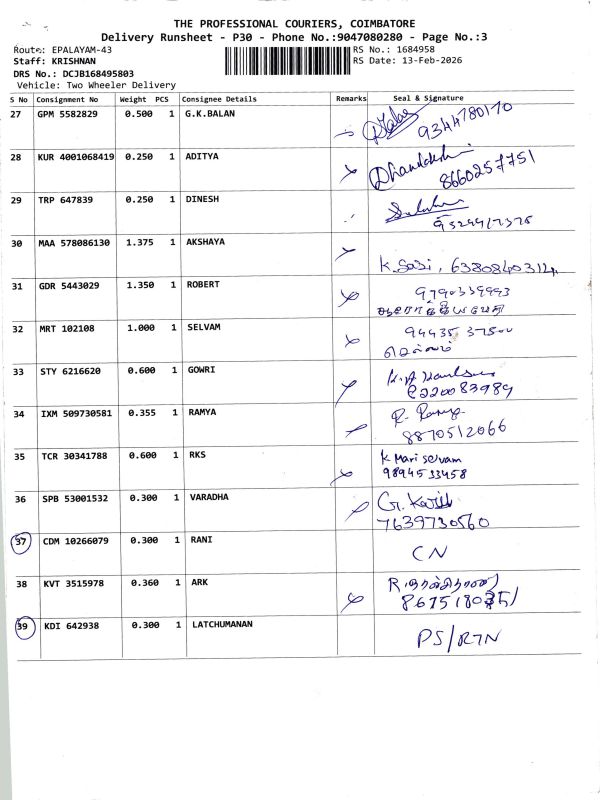 THE PROFESSIONAL COURIERS, COIMBATORE
Delivery Runsheet - P30 - Phone No.:9047080280 - Page No.:3
Route: EPALAYAM-43 RS No.: 1684958
Staff: KRISHNAN RS Date: 13-Feb-2026
DRS No.: DCJB168495803
Vehicle: Two Wheeler Delivery
S No Consignment No Weight PCS Consignee Details Remarks Seal & Signature
27 GPM 5582829 0.500 1 G.K.BALAN 9344780170
28 KUR 4001068419 0.250 1 ADITYA 8660257751
29 TRP 647839 0.250 1 DINESH
30 MAA 578086130 1.375 1 AKSHAYA K. Sasi,
31 GDR 5443029 1.350 1 ROBERT
32 MRT 102108 1.000 1 SELVAM
செல்வம்
33 STY 6216620 0.600 1 GOWRI
34 IXM 509730581 0.355 1 RAMYA R. Ramya
8870512066
35 TCR 30341788 0.600 1 RKS K Mari Selvam
9894533458
36 SPB 53001532 0.300 1 VARADHA
7639730560
37 CDM 10266079 0.300 1 RANI CN
38 KVT 3515978 0.360 1 ARK
39 KDI 642938 0.300 1 LATCHUMANAN PS/RTN